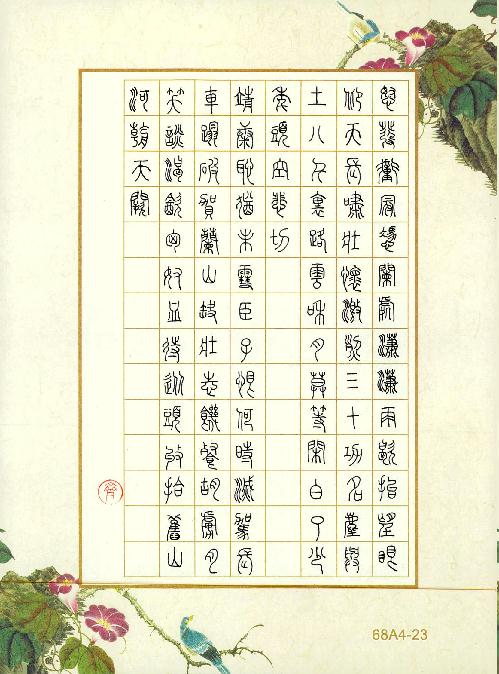 怒髮衝冠憑闌處瀟瀟雨歇抬望眼
仰天長嘯壯懷激烈三十功名塵與
土八千里路雲和月莫等閒白了少
年頭空悲切
靖康恥猶未雪臣子恨何時滅駕長
車踏破賀蘭山缺壯志饑餐胡虜肉
笑談渴飲匈奴血待從頭收拾舊山
河朝天闕
68A4-23